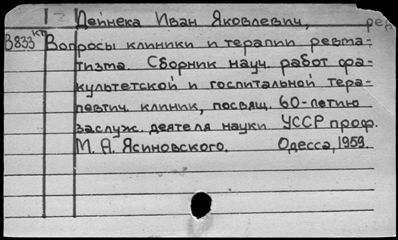 Дейнека Иван Яковлевич, ред
В833 кт Вопросы клиники и терапии ревма-
тизма. Сборник науч. работ фа-
культетской и госпитальной тера-
певтич. клиник, посвящ. 60-летию
заслуж. деятеля науки УССР проф.
М. А. Ясиновского. Одесса, 1959.